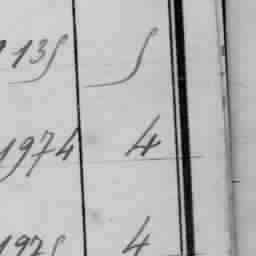 135 5
1974 4
1975 4